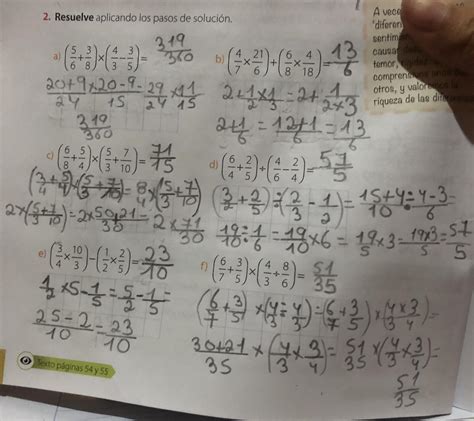 2. Resuelve aplicando los pasos de solución.
a) (5/6 + 3/8) × (4/3 - 3/5) = 319/360
20+9/24 × 20-9/15 = 29/24 × 11/15
319/360
b) (4/7 × 21/6) + (6/8 × 4/18) = 13/6
2 + 1/2 × 1/3 = 2 + 1/2×3
2+1/6 = 12+1/6 = 13/6
c) (6/8 + 5/4) × (5/3 + 7/10) = 71/15
(3/4 + 5/4) × (5/3 + 7/10) = 8/4 × (5/3 + 7/10)
2 × (5/3 + 7/10) = 2 × 50+21/30 = 2 × 71/30
d) (6/4 + 2/5) ÷ (4/6 - 2/4) = 57/5
(3/2 + 2/5) ÷ (2/3 - 1/2) = 15+4/10 ÷ 4-3/6
19/10 ÷ 1/6 = 19/10 × 6 = 19/5 × 3 = 19×3/5 = 57/5
e) (3/4 × 10/3) - (1/2 × 2/5) = 23/10
1/2 × 5 - 1/5 = 5/2 - 1/5 =
25-2/10 = 23/10
f) (6/7 + 3/5) × (4/3 ÷ 8/6) = 51/35
(6/7 + 3/5) × (4/3 ÷ 4/3) = (6/7 + 3/5) × (4×3/3 4) =
30+21/35 × (4/3 × 3/4) = 51/35 × (4/3 × 3/4) =
51/35
Texto páginas 54 y 55
A vece
"diferen
sentimie
causar
temor,
comprens
otros, y valoremos la
riqueza de las diferen